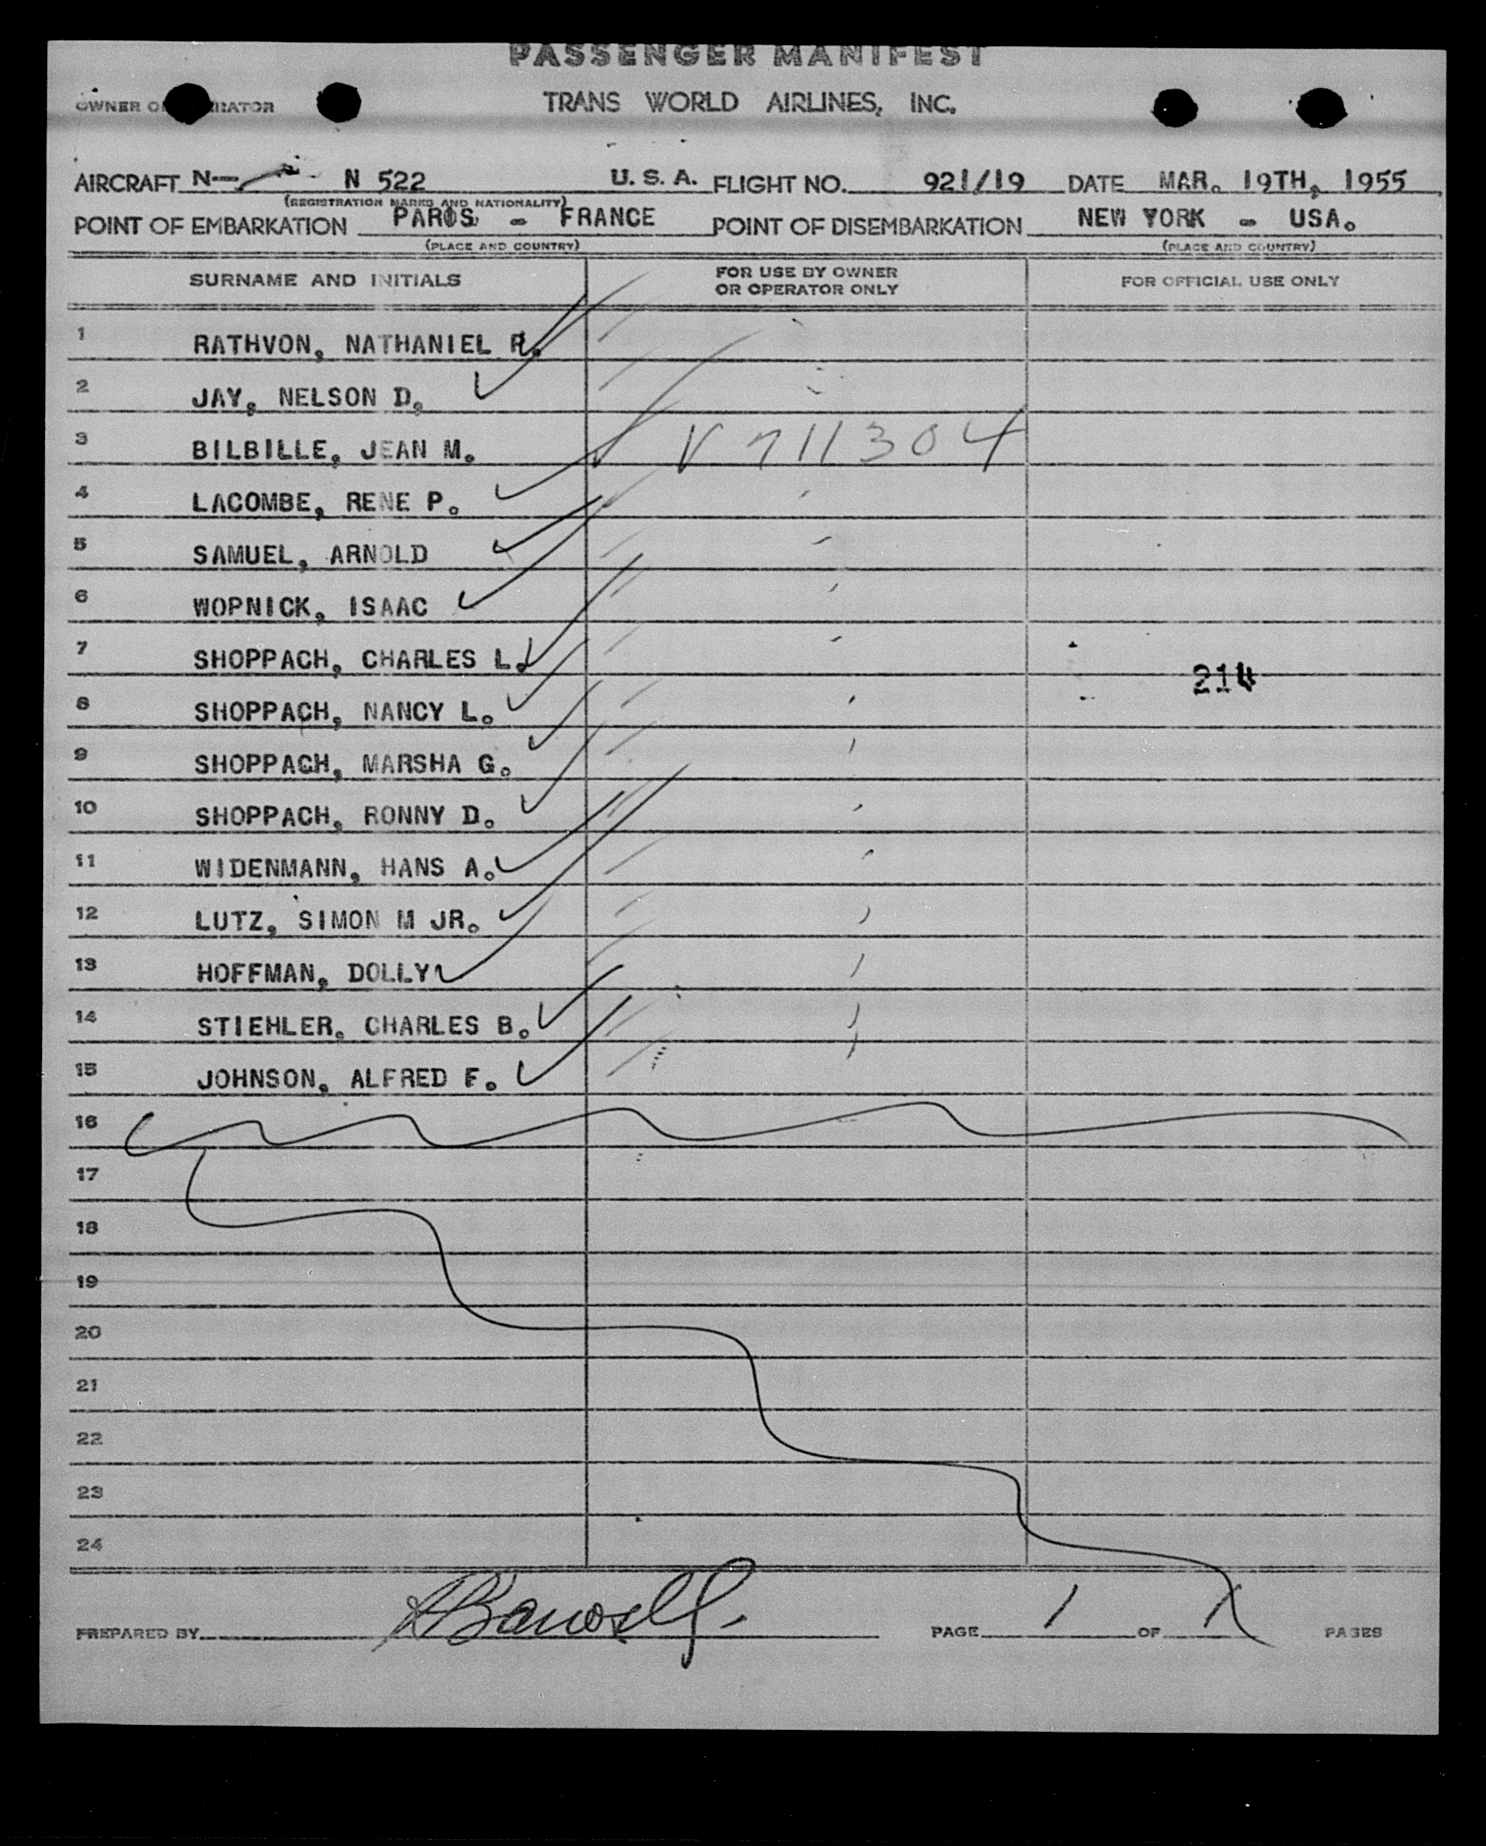 PASSENGER MANIFEST
OWNER OR OPERATOR TRANS WORLD AIRLINES, INC.
AIRCRAFT N- N 522 U. S. A. FLIGHT NO. 921/19 DATE MAR. 19TH, 1955
(REGISTRATION MARKS AND NATIONALITY)
POINT OF EMBARKATION PARIS - FRANCE POINT OF DISEMBARKATION NEW YORK - USA.
(PLACE AND COUNTRY) (PLACE AND COUNTRY)
SURNAME AND INITIALS FOR USE BY OWNER OR OPERATOR ONLY FOR OFFICIAL USE ONLY
1 RATHVON, NATHANIEL R.
2 JAY, NELSON D.
3 BILBILLE, JEAN M. V 711304
4 LACOMBE, RENE P.
5 SAMUEL, ARNOLD
6 WOPNICK, ISAAC
7 SHOPPACH, CHARLES L.
214
8 SHOPPACH, NANCY L.
9 SHOPPACH, MARSHA G.
10 SHOPPACH, RONNY D.
11 WIDENMANN, HANS A.
12 LUTZ, SIMON M JR.
13 HOFFMAN, DOLLY
14 STIEHLER, CHARLES B.
15 JOHNSON, ALFRED F.
16
17
18
19
20
21
22
23
24
PREPARED BY PAGE 1 OF 1 PAGES